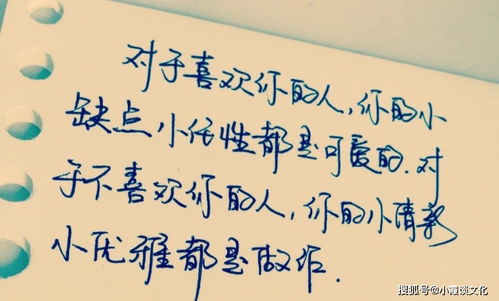 对于喜欢你的人，你的小
缺点小任性都是可爱的．对
于不喜欢你的人，你的小清新
小优雅都是做作．
搜狐号@小霞谈文化